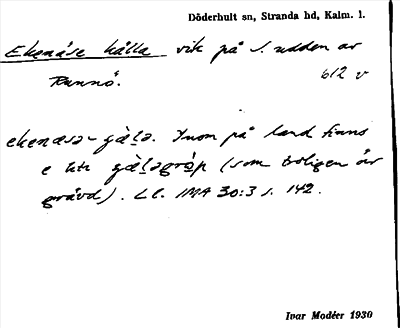 Döderhult sn, Stranda hd, Kalm. l.
Ekenäse källa vik på S. udden av
Runnö. 612 v
ekenæsə- ça̱lə. Inom på land finns
e ktr ça̱ləgrɔ̱p (som troligen är
grävd). Ll. IMA 30:3 s. 142.
Ivar Modéer 1930